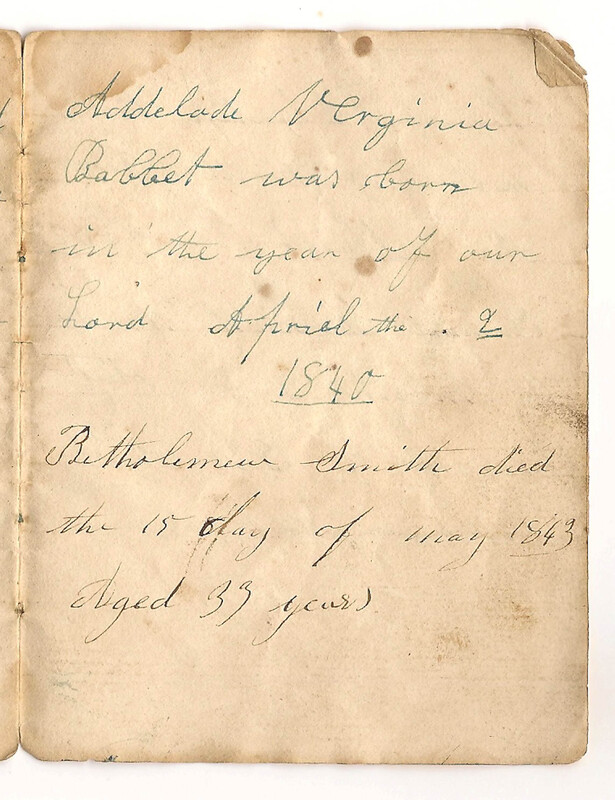 Addelade Verginia
Babbet was born
in the year of our
Lord Apriel the . 2
1840
Betholemew Smith died
the 15 day of may 1843
Aged 33 years